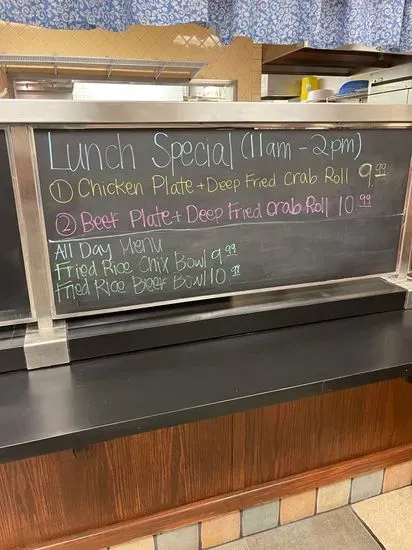 Lunch Special (11am - 2pm)
① Chicken Plate + Deep Fried Crab Roll 9.99
② Beef Plate + Deep Fried Crab Roll 10.99
All Day Menu
Fried Rice Chix Bowl 9.99
Fried Rice Beef Bowl 10.99